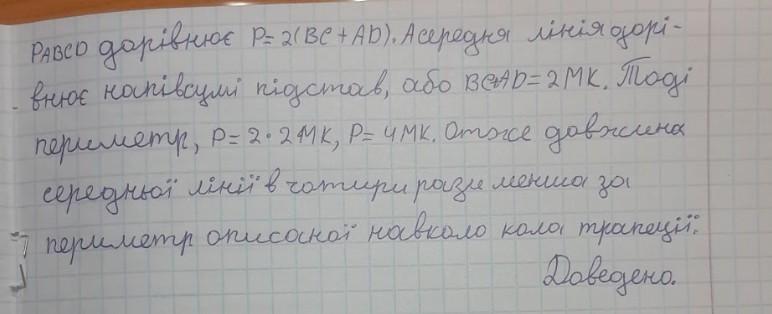 PABCD дорівнює P=2(BC+AD). А середня лінія дорі-
внює напівсумі підстав, або BC+AD=2MK. Тоді
периметр, P=2·2MK, P=4MK. Отже довжина
середньої лінії в чотири рази менша за
периметр описаної навколо кола трапеції.
Доведено.